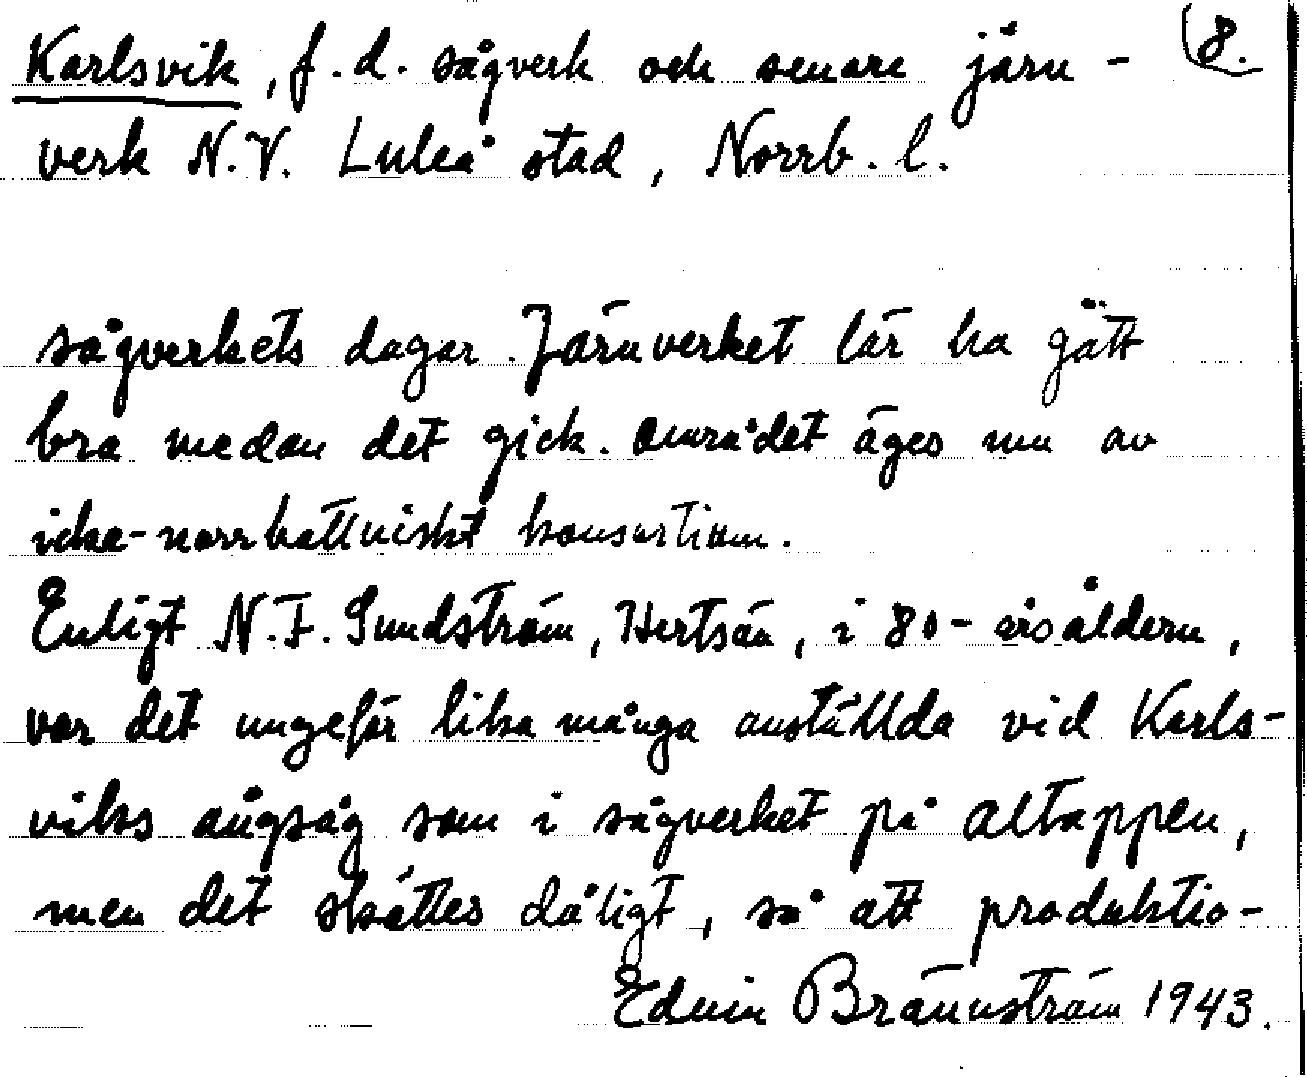 Karlsvik, f.d. sågverk och senare järn- 8.
verk N.V. Luleå stad, Norrb. l.
sågverkets dagar. Järnverket lär ha gått
bra medan det gick. Området äges nu av
icke-norrbottniskt konsortium.
Enligt N.F. Sundström, Hertsön, i 80-årsåldern,
var det ungefär lika många anställda vid Karls-
viks ångsåg som i sågverket på Altappen,
men det sköttes dåligt, så att produktio-
Edvin Brännström 1943.